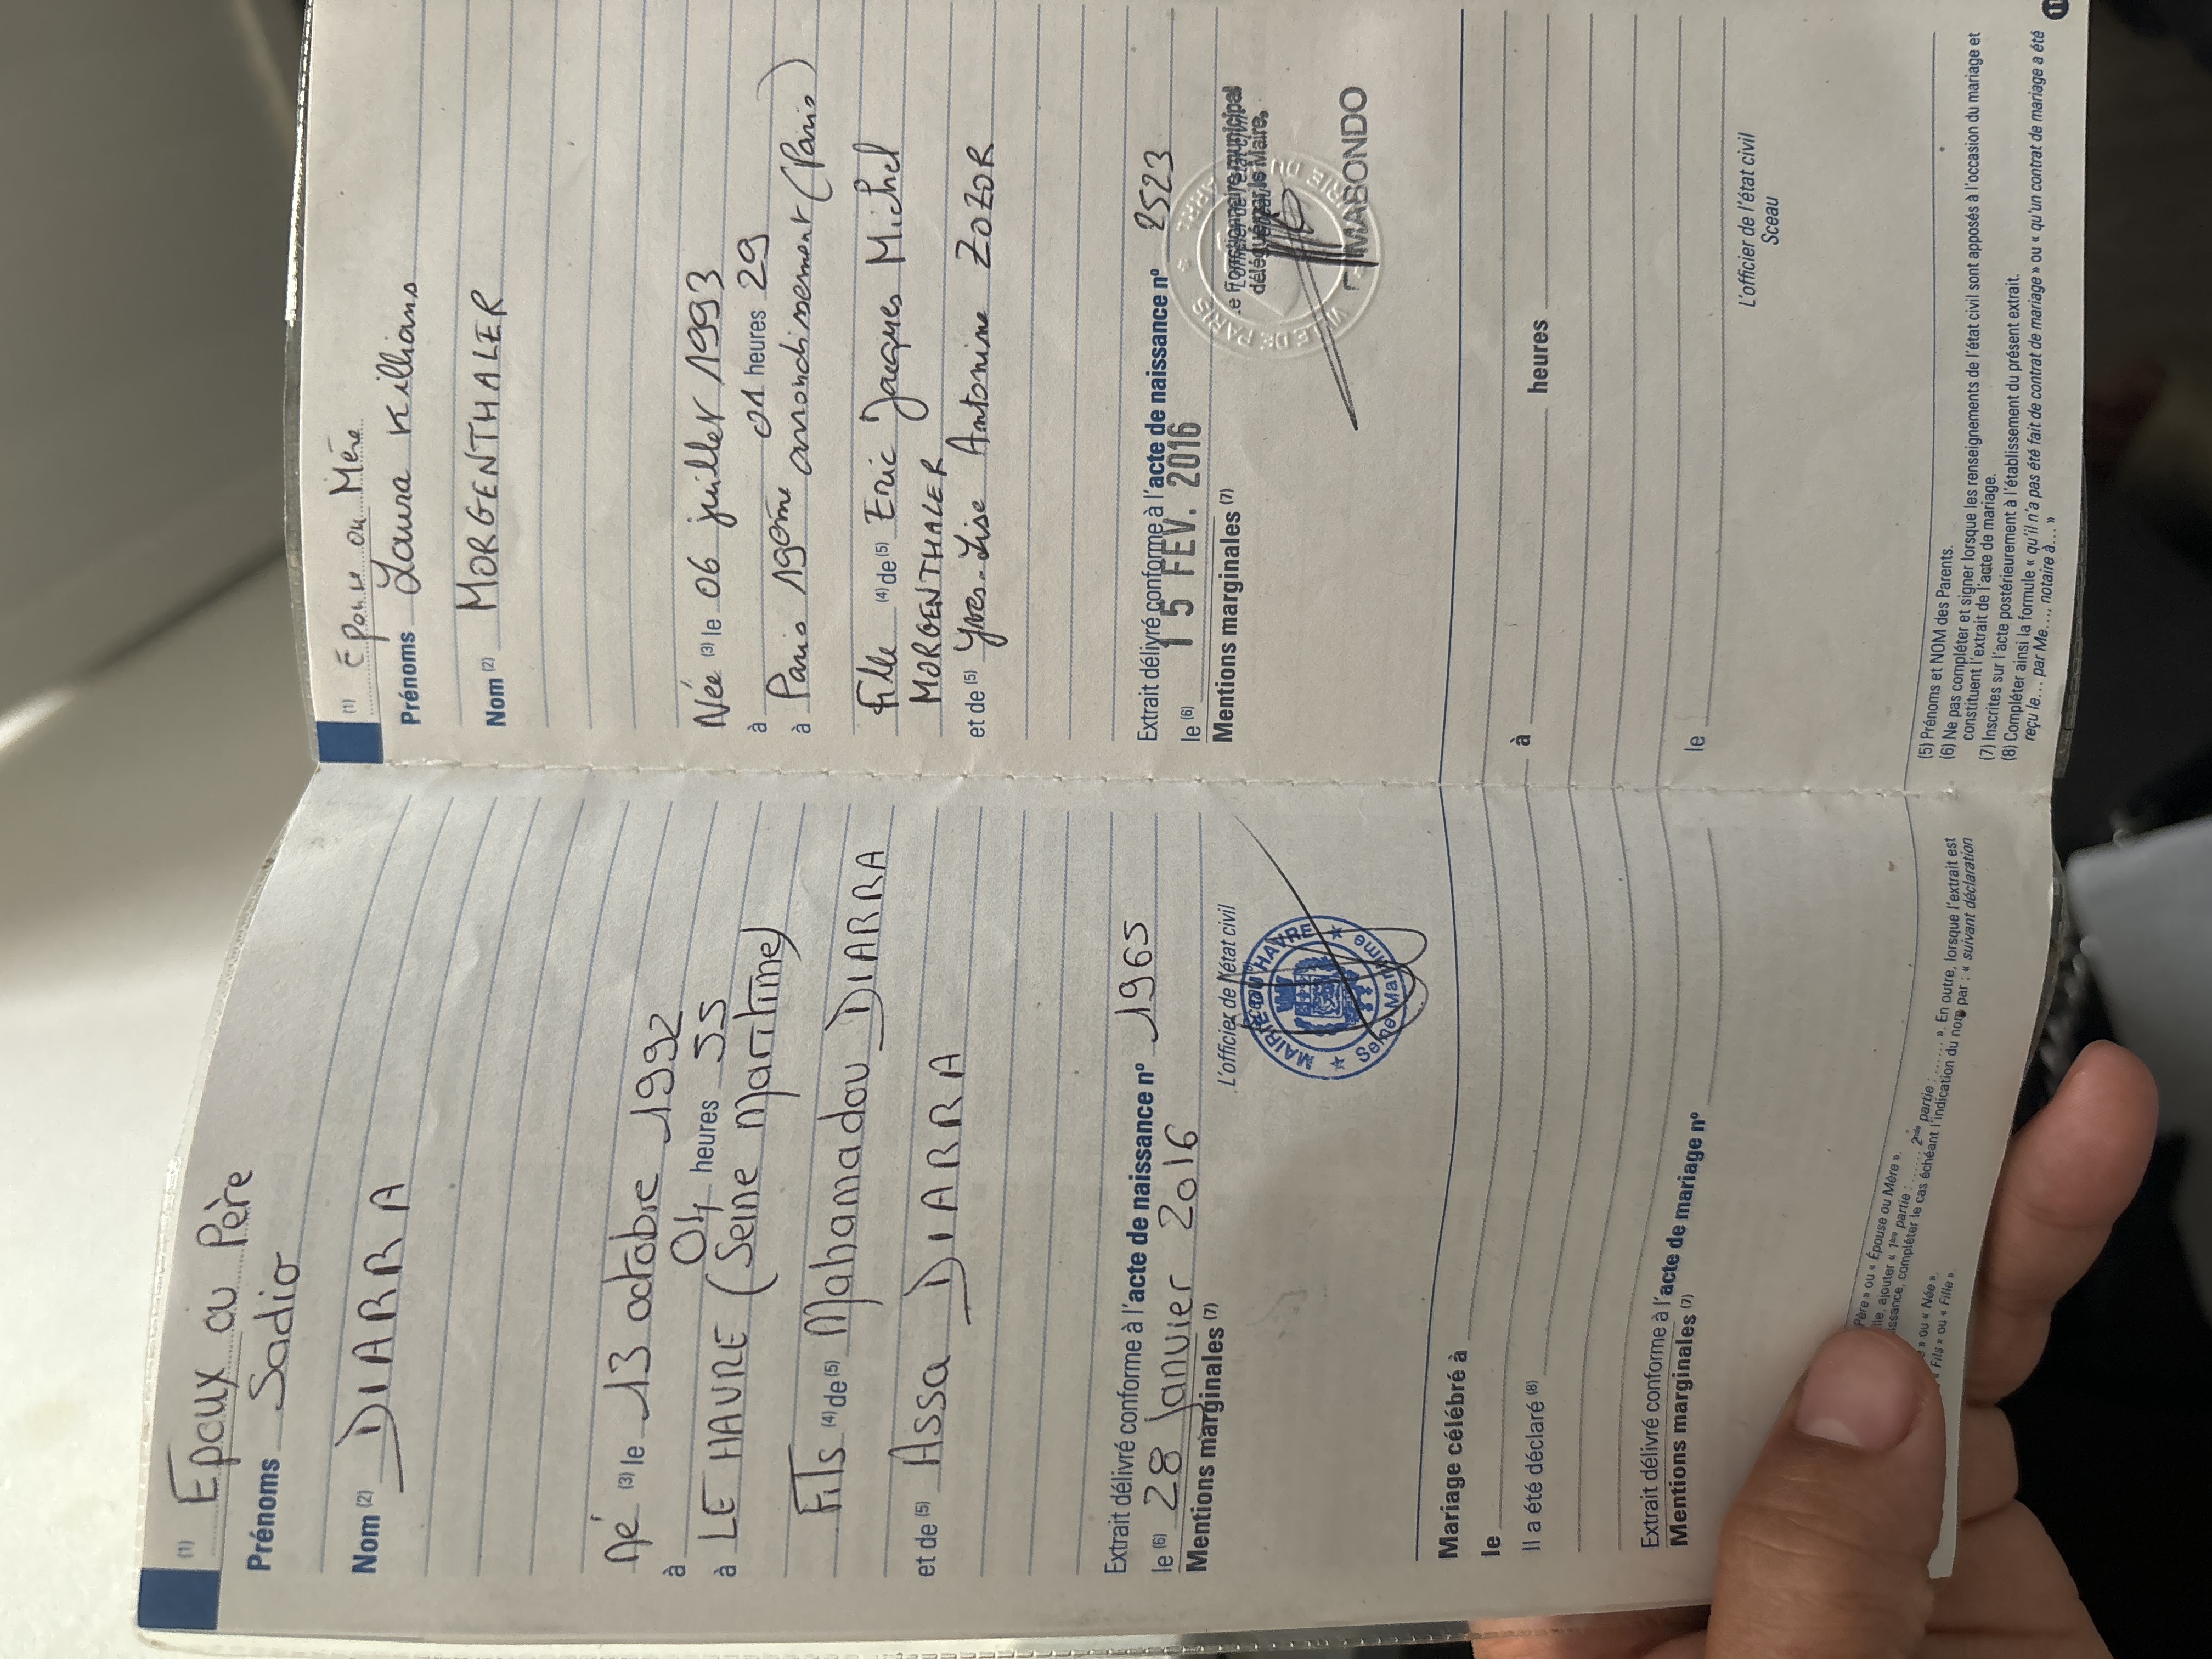 (1) Epoux ou Père
Prénoms Sadio
Nom (2) DIARRA
Né (3) le 13 octobre 1992
à 04 heures 55
à LE HAVRE (Seine Maritime)
Fils (4) de (5) Mahamadou DIARRA
et de (5) Assa DIARRA
Extrait délivré conforme à l'acte de naissance nº 1965
le (6) 28 Janvier 2016
L'officier de l'état civil
Mentions marginales (7)
MAIRIE DU HAVRE
Seine Maritime
Mariage célébré à
le
Il a été déclaré (8)
Extrait délivré conforme à l'acte de mariage nº
Mentions marginales (7)
Père » ou « Épouse ou Mère ».
ajouter « 1ère partie : ...... 2nde partie : ...... ». En outre, lorsque l'extrait est
compléter le cas échéant l'indication du nom par : « suivant déclaration
» ou « Née ».
Fils » ou « Fille »
(1) Epouse ou Mère
Prénoms Laura Killians
Nom (2) MORGENTHALER
Née (3) le 06 juillet 1993
à 01 heures 29
à Paris 19ème arrondissement (Paris)
Fille (4) de (5) Eric Jacques Michel
MORGENTHALER
et de (5) Yves-Lise Antonine ZOZOR
Extrait délivré conforme à l'acte de naissance nº 2523
le (6) 15 FEV. 2016
Mentions marginales (7)
Le Fonctionnaire municipal
délégué par le Maire,
VILLE DE PARIS
MABONDO
à heures
le
L'officier de l'état civil
Sceau
(5) Prénoms et NOM des Parents.
(6) Ne pas compléter et signer lorsque les renseignements de l'état civil sont apposés à l'occasion du mariage et
constituent l'extrait de l'acte de mariage.
(7) Inscrites sur l'acte postérieurement à l'établissement du présent extrait.
(8) Compléter ainsi la formule « qu'il n'a pas été fait de contrat de mariage » ou « qu'un contrat de mariage a été
reçu le... par Me..., notaire à... »
11